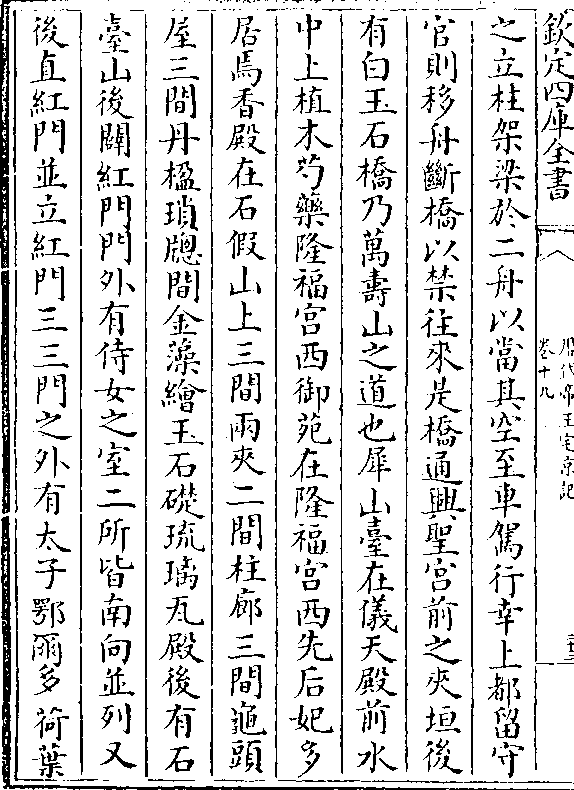 欽定四庫全書
歷代帝王宅京記
卷十九
之立柱架梁於二舟以當其空至車駕行幸上都留守
官則移舟斷橋以禁往來是橋通興聖宫前之夾垣後
有白玉石橋乃萬壽山之道也犀山臺在儀天殿前水
中上植木芍藥隆福宫西御苑在隆福宫西先后妃多
居焉香殿在石假山上三間兩夾二間柱廊三間龜頭
屋三間丹楹瑣牕間金藻繪玉石礎琉璃瓦殿後有石
臺山後闢紅門門外有侍女之室二所皆南向並列又
後直紅門並立紅門三三門之外有太子鄂爾多荷葉